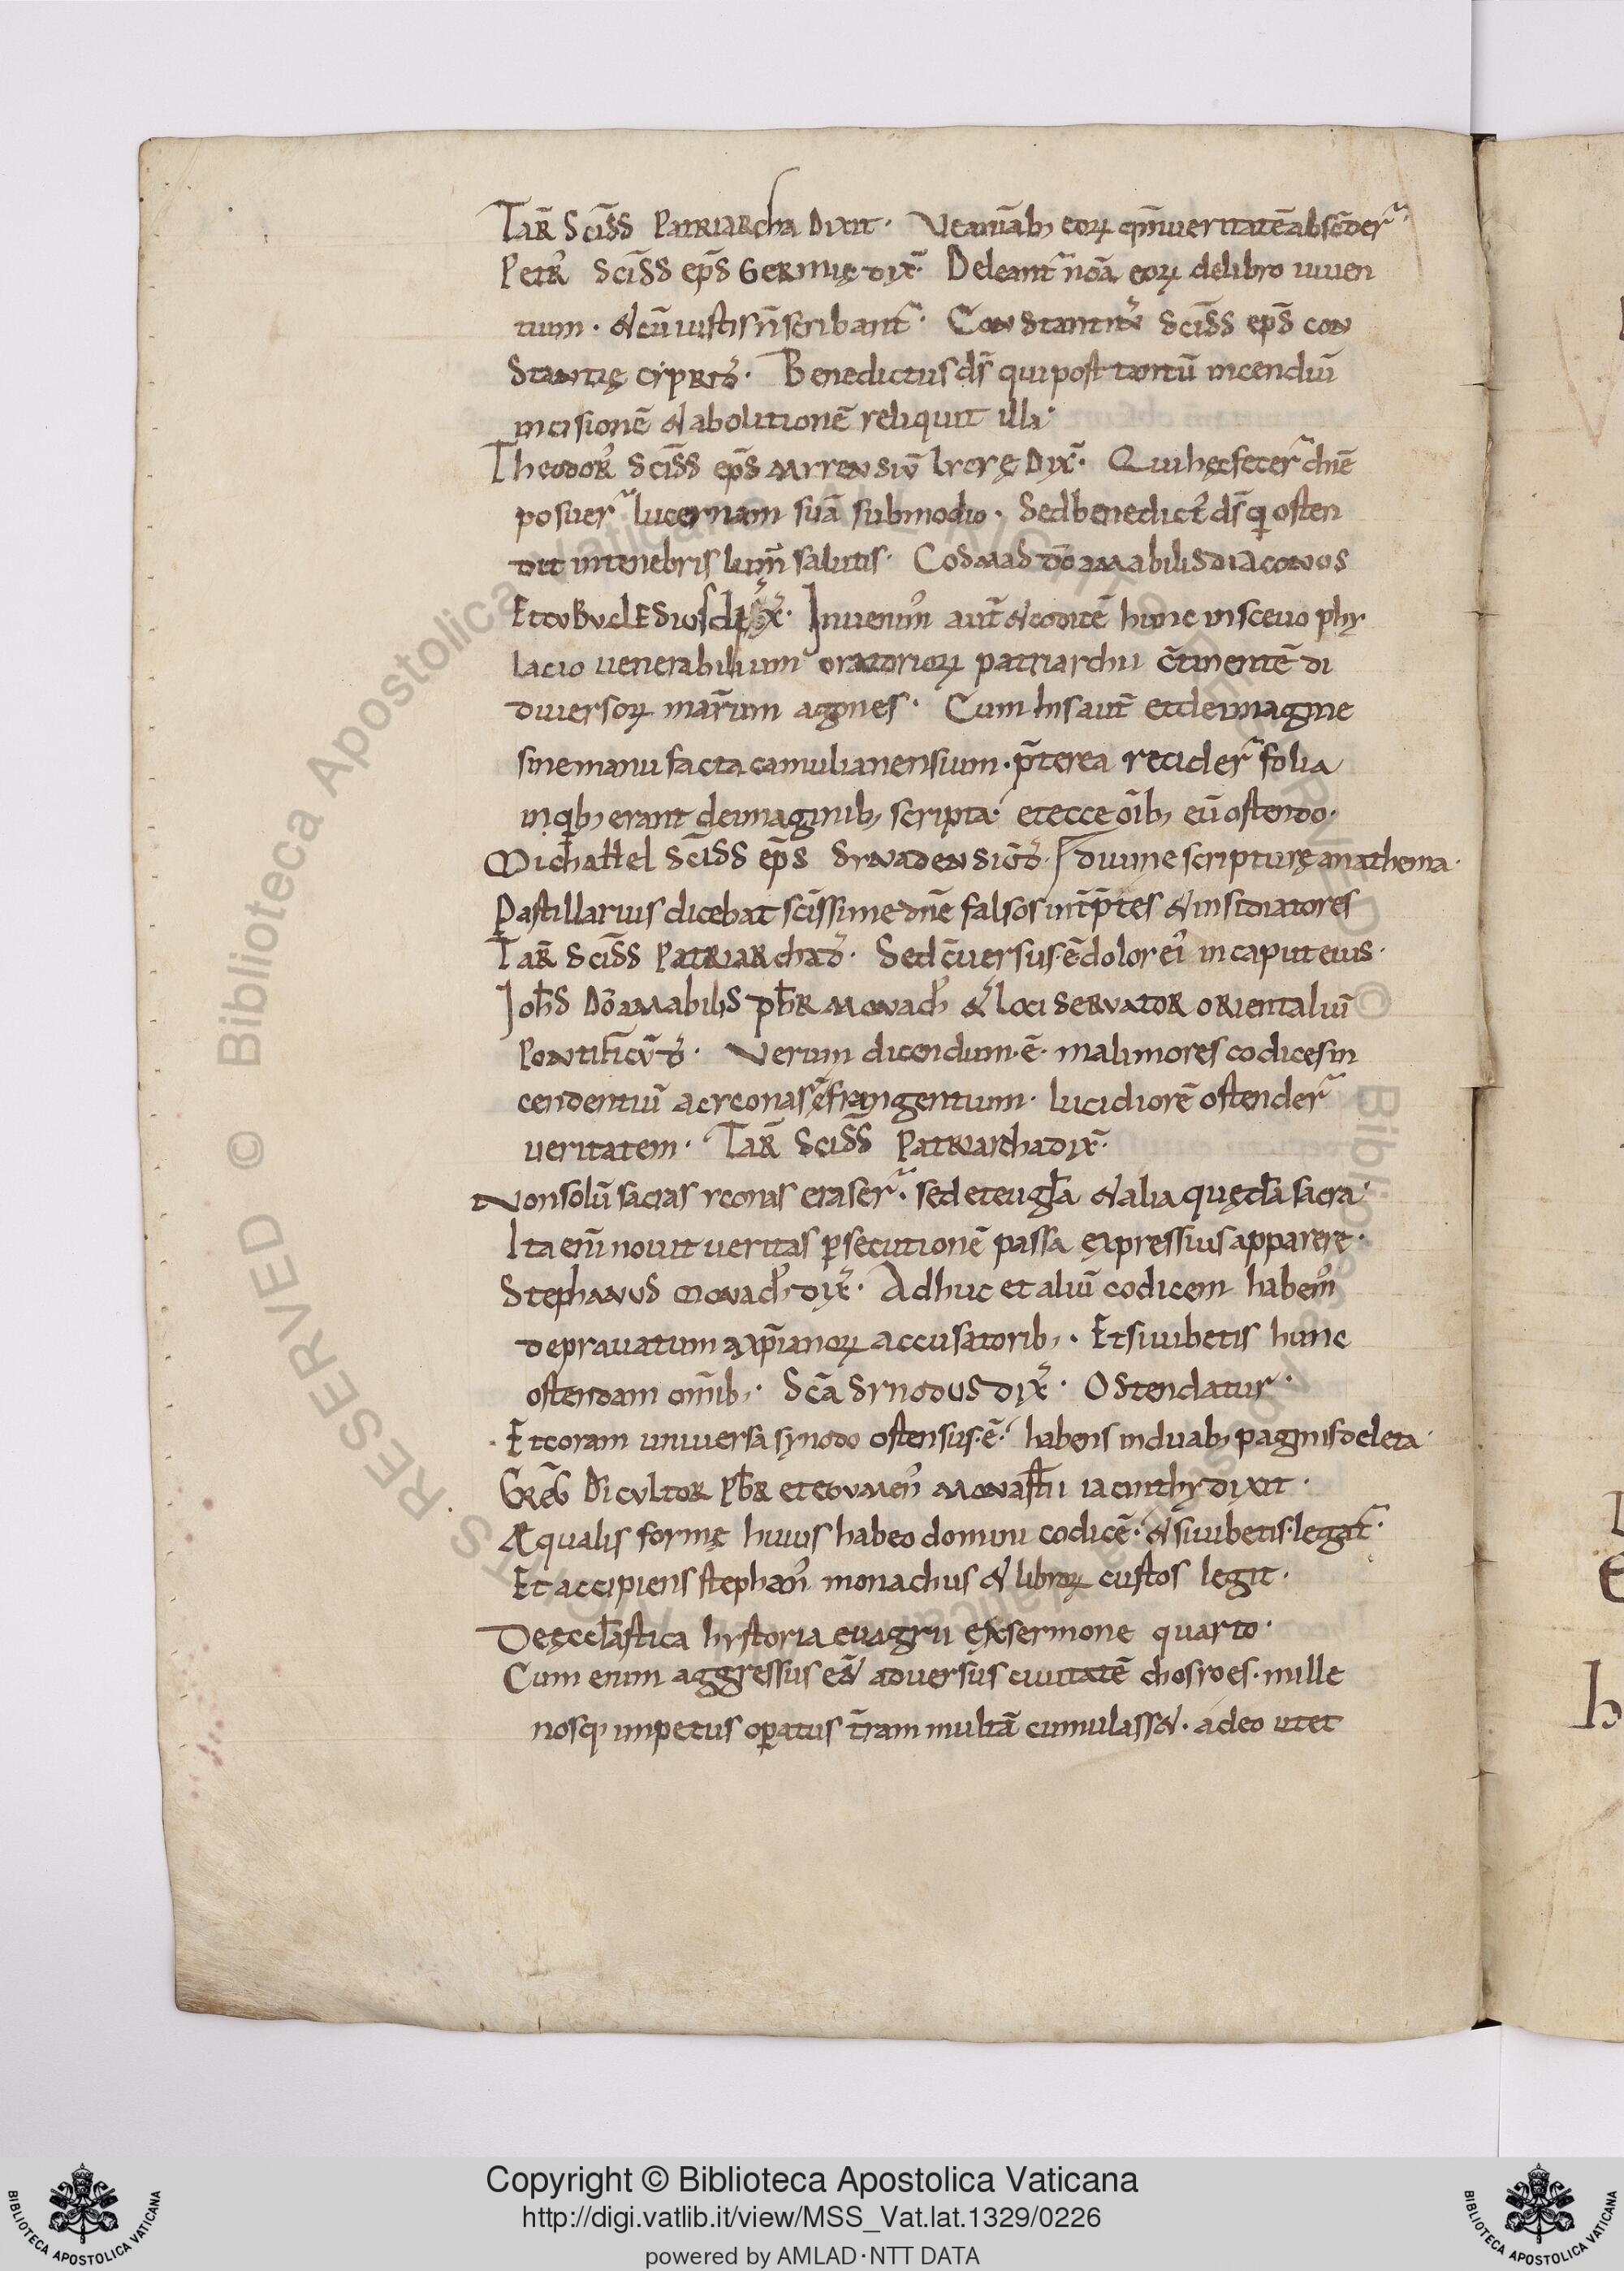 Tar̄ Scīss Patriarcha Dixit. Ueanīab; eoꝝ qm̄ ueritatē abscōder̄
Petr᷒ scīss ep̄s Germię dix̄. Deleant᷒ noīa eoꝝ de libro uiuen
tium. & cū iustis n̄ scribant᷒. Constantin᷒ scīss ep̄s con
stantię cypri d̄. Benedictus ds̄ qui post tantū incendiū
incisionē & abolitionē reliquit illa.
Theodor᷒ scīss ep̄s mrrensiū lrcię Dix̄. Qui hęc fecer̄ dn̄e
posuer̄ lucernam suā sub modio. Sed benedict᷒ ds̄ qi osten
dit in tenebris lum̄ salutis. Cosmas dō amabilis diaconos
Et cubuclesius dix̄. Inuenim᷒ aut̄ & codicē hunc in sceuo phy
lacio uenerabilium oratorioꝝ patriarchii c̄tinentē di
diuersoꝝ mar̄rum agones. Cum his aut̄ et de imagine
sine manu facta camulianensium. p̄terea recider̄ folia
in qib; erant de imaginib; scripta. et ecce oīb; eū ostendo.
Michahel scīss ep̄s synadensis d̄. diuine scripturę anathema.
Pastillarius dicebat scīssime dn̄e falsos int̄p̄tes & insidiatores
Tar̄ scīss Patriarcha d̄. Sed c̄uersus ē dolor ei᷒ in caput eius.
Joh̄s Dō amabilis pb̄r monach᷒ & loci seruator orientaliū
Pontificū d̄. Uerum dicendum ē. mali mores codices in
cendentiū ac yconas c̄frangentium. lucidiorē ostender̄
ueritatem. Tar̄ scīss Patriarcha dix̄.
Non solū sacras yconas eraser̄. sed et eugl̄a & alia quędā sacra.
Ita enī nouit ueritas ꝑsecutionē passa expressius apparere.
Stephanus monach᷒ dix̄. Adhuc et aliū codicem habem᷒
deprauatum a xp̄ianoꝝ accusatorib;. Et si iubetis hunc
ostendam omīb;. Scā synodus dix̄. Ostendatur.
Et coram uniuersa synodo ostensus ē. habens in duab; paginis deleta.
Greḡ Di cultor Pb̄r et eoumen᷒ monast̄ii iacinthy dixit.
Æqualis formę huius habeo domini codicē. & si iubetis legat᷒.
Et accipiens stephan᷒ monachus & libroꝝ custos legit.
De ęccl̄astica hystoria euagrii ex sermone quarto.
Cum enim aggressus eēt aduersus ciuitatē chosroes. mille
nosq; impetus oꝑatus t̄ram multā cumulass&. adeo ut et
Copyright © Biblioteca Apostolica Vaticana
http://digi.vatlib.it/view/MSS_Vat.lat.1329/0226
powered by AMLAD·NTT DATA
BIBLIOTECA APOSTOLICA VATICANA
BIBLIOTECA APOSTOLICA VATICANA